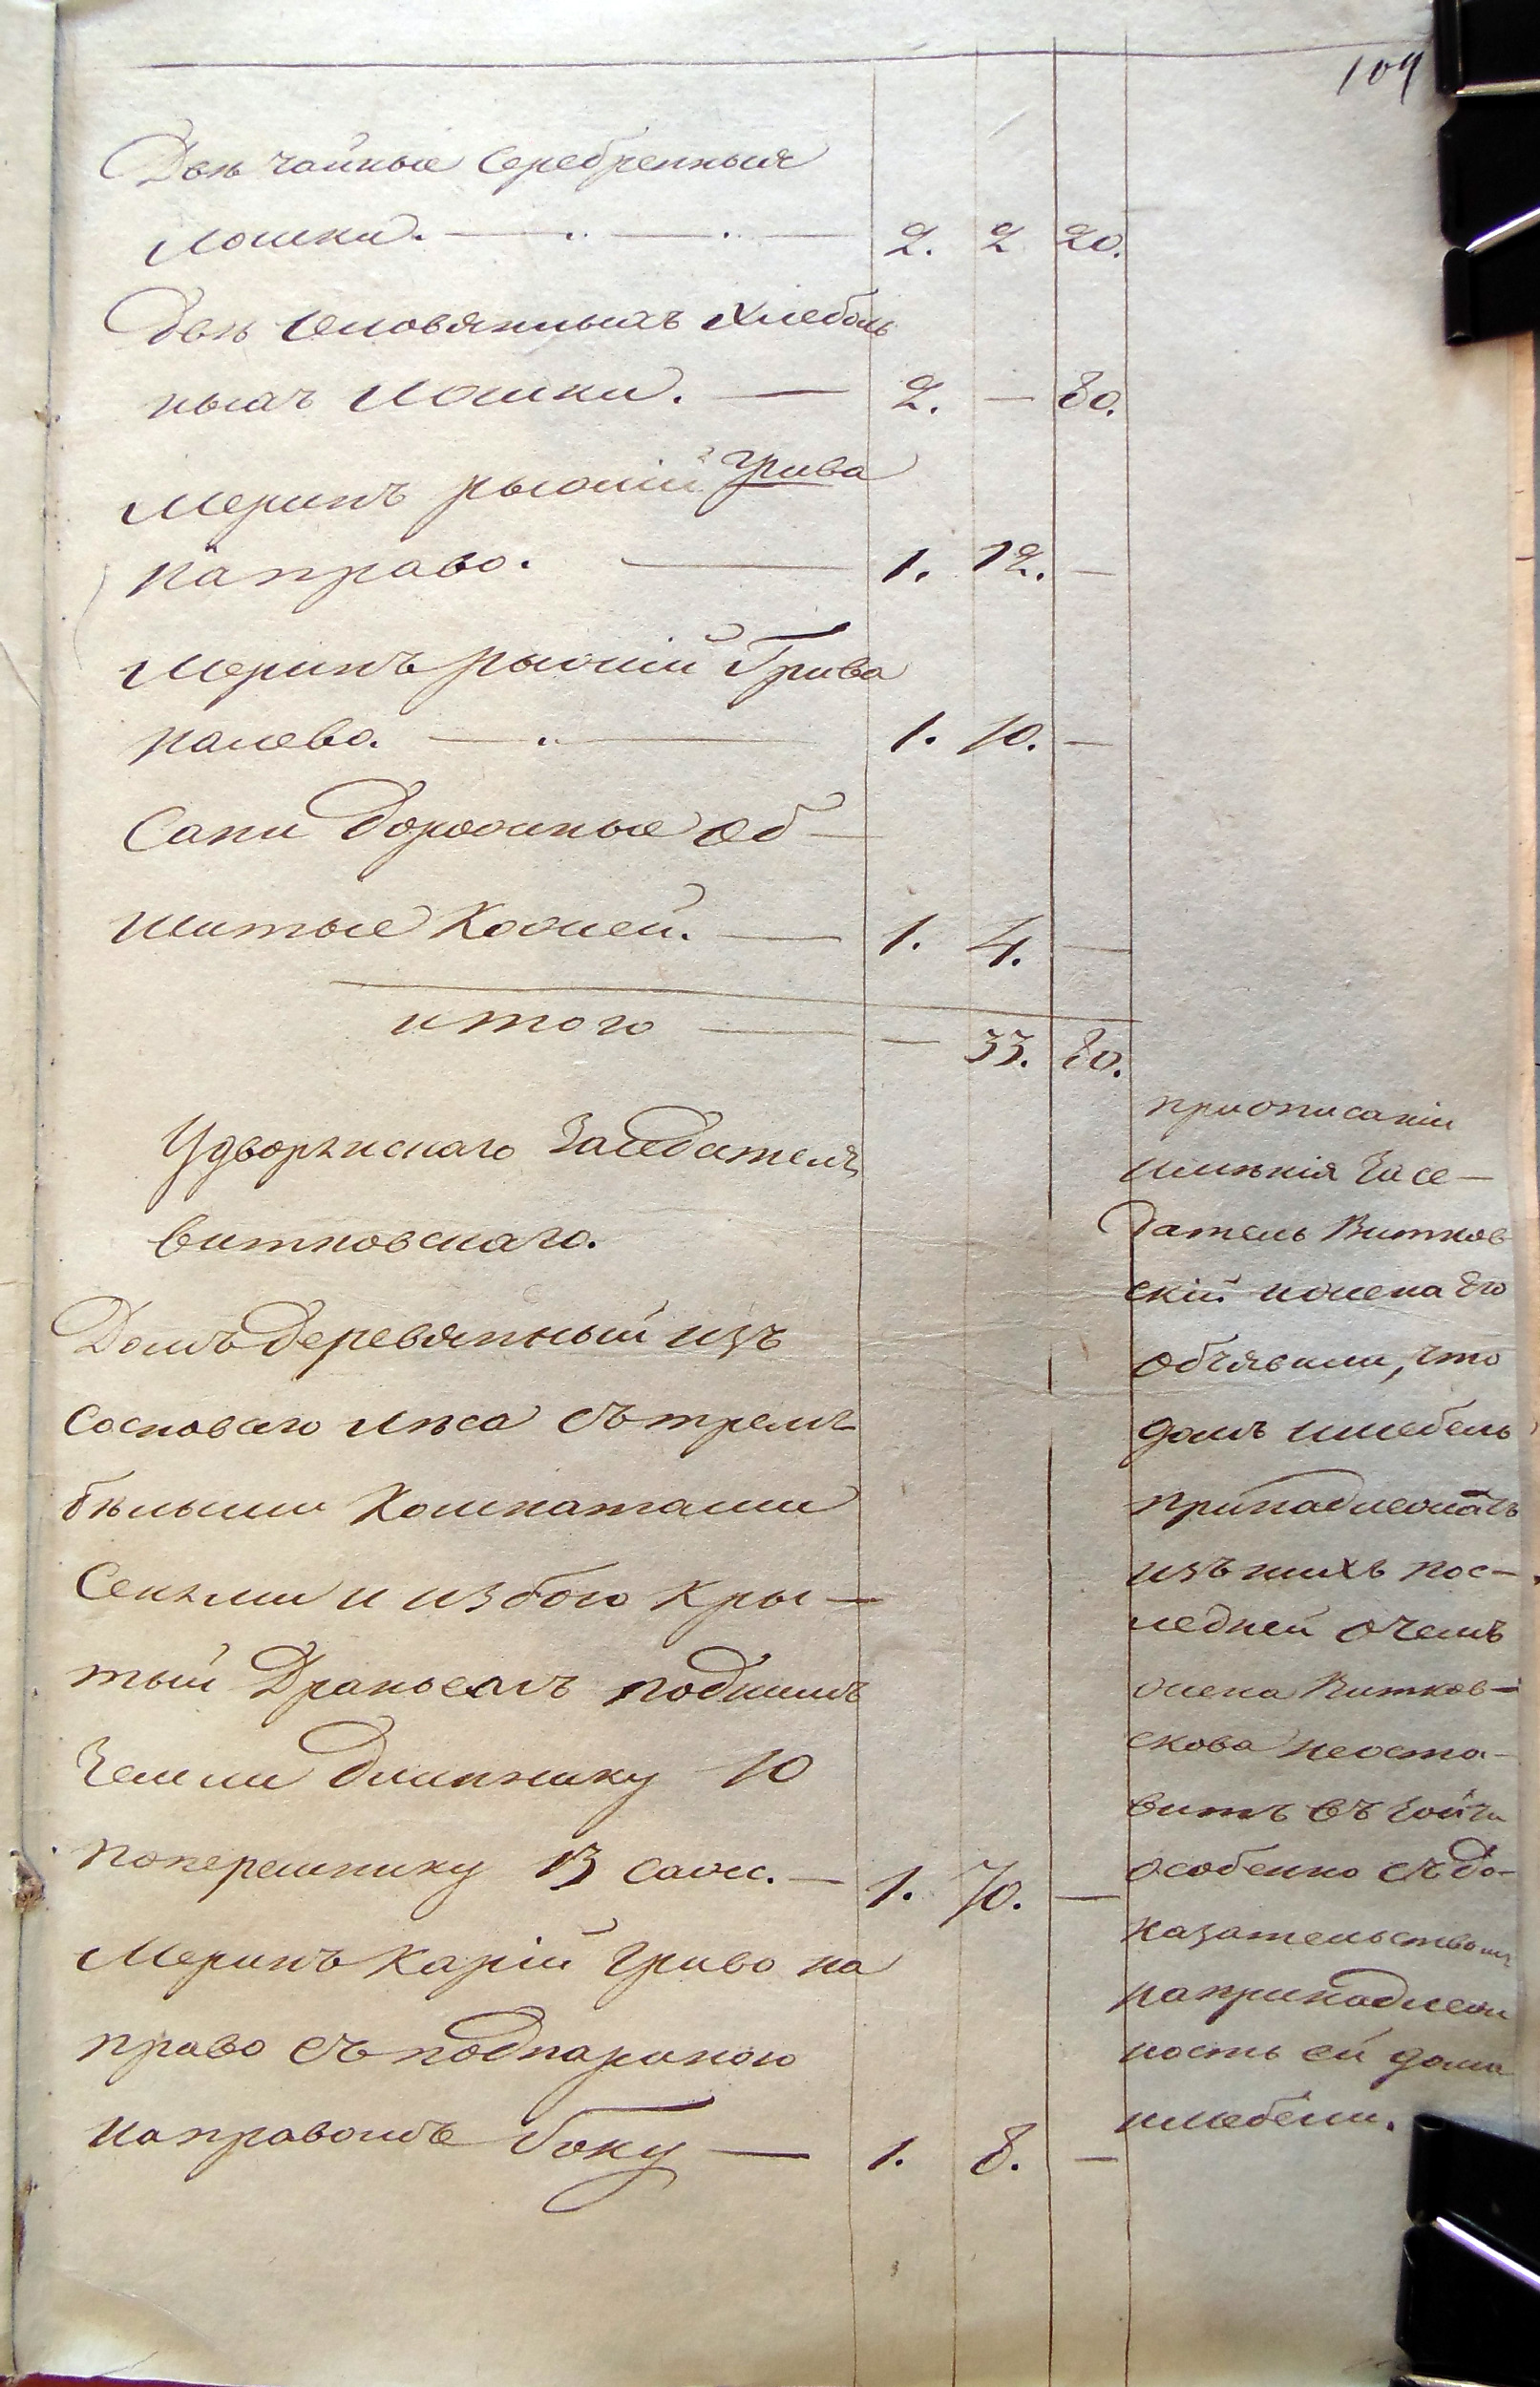 109
Двѣ чайные серебренныя
ложки. — . — . — 2. 2 20.
Двѣ оловянныхъ хлебаль
ныхъ ложки. — 2. — 80.
Меринъ рыжій грива
направо. — 1. 12. —
Меринъ рыжій грива
налево. — . — 1. 10. —
Сани дорожные об-
шитые кожей. — 1. 4. —
итого — — 33. 80.
У дворянскаго Заседателя
Витковскаго.
Домъ деревянный изъ
сосноваго лѣса съ тремъ
бѣлыми комнатами
сеньми и избою кры-
тый драньемъ подъ нимъ
земли длиннику 10
поперешнику 13 саж. — 1. 70. —
Меринъ карій грива на
право съ подпариною
на правомъ боку — 1. 8. —
при описаніи
имѣнія Засе-
датель Витков
скій и жена его
объявили, что
домъ и мебель
принадлежатъ
изъ нихъ пос-
ледней о чемъ
жена Витков-
скова неоста-
витъ войти
особенно съ до-
казательствомъ
на принадлеж
ность ей дома
и мебели.